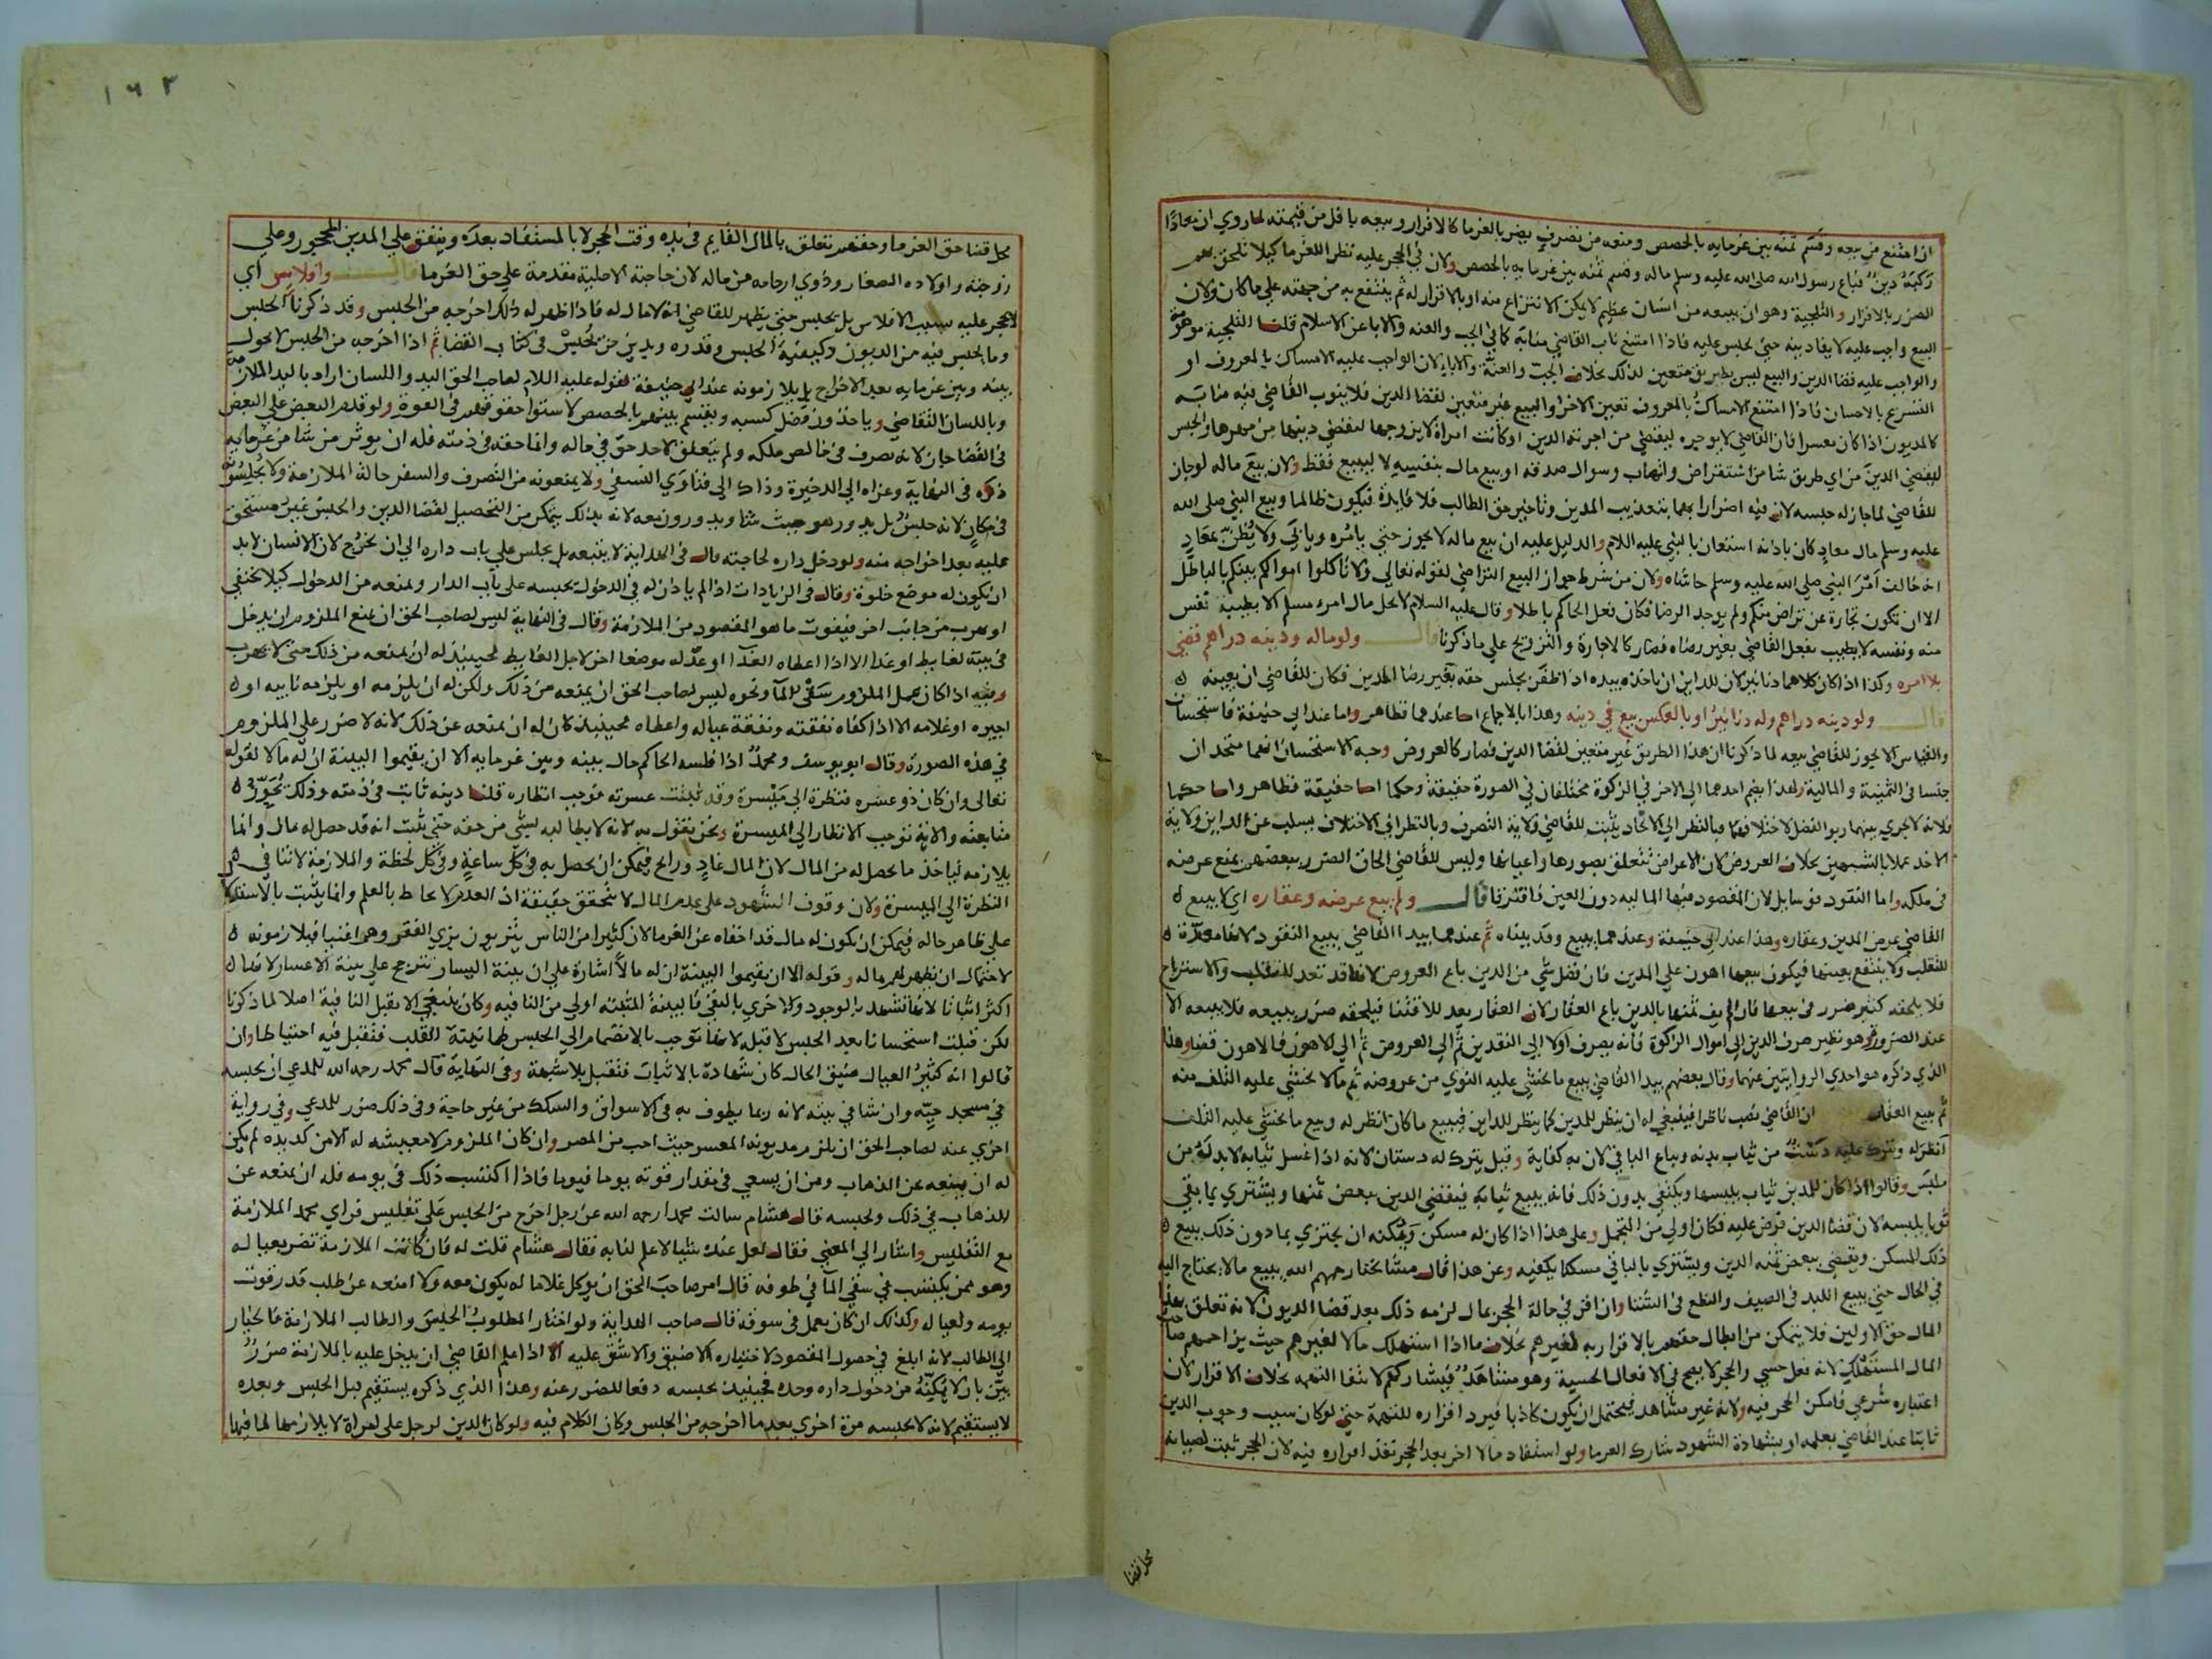 ان امتنع من بيعه وقسم ثمنه بين غرمايه بالحصص ومنعه من تصرف يضر بالغرما كالاقرار وبيعه باقل من قيمته لما روي ان معاذا
ركبه دين فباع رسول الله صلى الله عليه وسلم ماله وقسم ثمنه بين غرمايه بالحصص ولان في الحجر عليه نظرا للغرما كيلا يلحق بهم
الضرر بالاقرار والتلجية وهو ان يبيعه من انسان عظيم لا يمكن الانتزاع منه او بالاقرار له ثم ينتفع به من جهته على ما كان ولان
البيع واجب عليه لايفا دينه حتى يحبس عليه فاذا امتنع ناب القاضي منابه كما في الجب والعنه والابا عن الاسلام قلنا التلجية موهومة
والواجب عليه قضا الدين والبيع ليس بطريق متعين لذلك بخلاف الجب والعنة والاباء لان الواجب عليه الامساك بالمعروف او
التسريح بالاحسان فاذا امتنع الامساك بالمعروف تعين الاخر والبيع غير متعين لقضا الدين فلا ينوب القاضي فيه منابه
كالمديون اذا كان معسرا فان القاضي لا يوجره ليقضي من اجرته الدين او كانت امراة لا يزوجها ليقضي دينها من مهرها والحبس
ليقضي الدين من اي طريق شا من استقراض واتهاب وسوال صدقه او بيع ماله بنفسه لا لبيع فقط ولان بيع ماله لو جاز
للقاضي لما جاز له حبسه لان فيه اضرارا بهما بتعذيب المدين وتاخير حق الطالب فلا فايدة فيكون ظالما وبيع النبي صلى الله
عليه وسلم مال معاذ كان باذنه استعان بالنبي عليه السلام والدليل عليه ان بيع ماله لا يجوز حتى يامره ويابى ولا يظن بمعاذ
انه خالف امر النبي صلى الله عليه وسلم حاشاه ولان من شرط جواز البيع التراضي لقوله تعالى ولا تاكلوا اموالكم بينكم بالباطل
الا ان تكون تجارة عن تراض منكم ولم يوجد الرضا فكان فعل الحاكم باطلا وقال عليه السلام لا يحل مال امرء مسلم الا بطيبة نفس
منه ونفسه لا يطيب بفعل القاضي بغير رضاه فصار كالاجارة والتزويج على ما ذكرنا قال ولو ماله ودينه دراهم قضى
بلا امره وكذا اذا كان كلاهما دنانير لان للداين ان ياخذه بيده اذا ظفر بجنس حقه بغير رضا المدين فكان للقاضي ان يعينه
قال ولو دينه دراهم وله دنانير او بالعكس بيع في دينه وهذا بالاجماع اما عندهما فظاهر واما عند ابي حنيفة فاستحسان
والقياس الا يجوز للقاضي بيعه لما ذكرنا ان هذا الطريق غير متعين لقضا الدين فصار كالعروض وجه الاستحسان انهما متحدان
جنسا في الثمنية والمالية ولهذا يضم احدهما الى الاخر في الزكوة مختلفان في الصورة حقيقة وحكما اما حقيقة فظاهر واما حكما
فلانه لا يجري بينهما ربو الفضل لاختلافهما فبالنظر الى الاتحاد يثبت للقاضي ولاية التصرف وبالنظر الى الاختلاف يسلب عن الداين ولاية
الاخذ عملا بالشبهين بخلاف العروض لان الاغراض تتعلق بصورها واعيانها وليس للقاضي الحاق الضرر ببعضهم بمنع غرضه
في ملكه واما النقود فوسايل لان المقصود فيها المالية دون العين فافترقا قال ولم يبع عرضه وعقاره اي لا يبيع
القاضي عرض المدين وعقاره وهذا عند ابي حنيفة وعندهما يبيع وقد بيناه ثم عندهما يبدا القاضي ببيع النقود لانها معدة
للتقلب ولا ينتفع بعينها فيكون بيعها اهون على المدين فان فضل شي من الدين باع العروض لانها قد تعد للتقلب والاسترباح
فلا يلحقه كثير ضرر في بيعها فان لم يف ثمنها بالدين باع العقار لان العقار يعد للاقتنا فيلحقه ضرر ببيعه فلا يبيعه الا
عند الضرورة وهو نظير صرف الدين الى اموال الزكوة فانه يصرف اولا الى النقدين ثم الى العروض ثم الى الاهون فالاهون قضا وهذا
الذي ذكره هو احدي الروايتين عنهما وقال بعضهم يبدا القاضي ببيع ما يخشى عليه التوي من عروضه ثم ما لا يخشى عليه التلف منه
ثم يبيع العقار ان القاضي نصب ناظرا فينبغي له ان ينظر للمدين كما ينظر للداين فيبيع ما كان انظر له وبيع ما يخشى عليه التلف
انظر له ويترك عليه دست من ثياب بدنه ويباع الباقي لان به كفاية وقيل يترك له دستان لانه اذا غسل ثيابه لا بد له من
ملبس وقالوا اذا كان للمدين ثياب يلبسها ويكتفي بدون ذلك فانه يبيع ثيابه فيقضي الدين ببعض ثمنها ويشتري بما بقي
ثوبا يلبسه لان قضا الدين فرض عليه فكان اولى من التجمل وعلى هذا اذا كان له مسكن ويمكنه ان يجتزي بما دون ذلك يبيع
ذلك المسكن ويقضي ببعض ثمنه الدين ويشتري بالباقي مسكنا يكفيه وعن هذا قال مشايخنا رحمهم الله يبيع ما لا يحتاج اليه
في الحال حتى يبيع اللبد في الصيف والنطع في الشتا وان اقر في حالة الحجر بمال لزمه ذلك بعد قضا الديون لانه تعلق بهذا
المال حق الاولين فلا يتمكن من ابطال حقهم بالاقرار به لغيرهم بخلاف ما اذا استهلك مالا لغيرهم حيث يزاحمهم صاحب
المال المستهلك لانه فعل حسي والحجر لا يصح في الافعال الحسية وهو مشاهد فيشاركهم لانتفا التهمه بخلاف الاقرار لان
اعتباره شرعي فامكن الحجر فيه ولانه غير مشاهد فيحتمل ان يكون كاذبا فيرد اقراره للتهمة حتى لو كان سبب وجوب الدين
ثابتا عند القاضي بعلمه او بشهادة الشهود شارك الغرما ولو استفاد مالا اخر بعد الحجر نفذ اقراره فيه لان الحجر ثبت لصيانة
محل قضا
١٦٣
محل قضا حق الغرما وحقهم تعلق بالمال القايم في يده وقت الحجر لا بالمستفاد بعده وينفق على المدين المحجور وعلى
زوجته واولاده الصغار وذوي ارحامه من ماله لان حاجته الاصلية مقدمة على حق الغرما قال وافلاس اي
لا يحجر عليه بسبب الافلاس بل يحبس حتى يظهر للقاضي انه لا مال له فاذا ظهر له ذلك اخرجه من الحبس وقد ذكرنا الحبس
وما يحبس فيه من الديون وكيفية الحبس وقدره ويدين من يحبس في كتاب القضا ثم اذا اخرجه من الحبس لا يحول
بينه وبين غرمايه بعد الاخراج بل يلازمونه عند ابي حنيفة لقوله عليه السلام لصاحب الحق اليد واللسان اراد باليد الملازمة
وباللسان التقاضي وياخذون فضل كسبه ويقسم بينهم بالحصص لاستوا حقوقهم في القوة ولو قدم البعض على البعض
في القضا جاز لانه تصرف في خالص ملكه ولم يتعلق لاحد حق في ماله وانما حقه في ذمته فله ان يوثر من شا من غرمايه
ذكره في النهاية وعزاه الى الذخيرة وذاك الى فتاوي النسفي ولا يمنعونه من التصرف والسفر حالة الملازمة ولا يجلسونه
في مكان لانه حبس بل يدور هو حيث شا ويدورون معه لانه بذلك يتمكن من التحصيل لقضا الدين والحبس غير مستحق
عليه بعد اخراجه منه ولو دخل داره لحاجته قال في الهداية لا يتبعه بل يجلس على باب داره الى ان يخرج لان الانسان لا بد
ان يكون له موضع خلوة وقال في الزيادات اذا لم ياذن له في الدخول يحبسه على باب الدار ويمنعه من الدخول كيلا يختفي
او يهرب من جانب اخر فيفوت ما هو المقصود من الملازمة وقال في النهاية ليس لصاحب الحق ان يمنع الملزوم ان يدخل
في بيته لغايط او غدا الا اذا اعطاه الغدا او عد له موضعا اخر لاجل الغايط فحينيذ له ان يمنعه من ذلك حتى لا يهرب
وفيه اذا كان عمل الملزوم سقى الما ونحوه ليس لصاحب الحق ان يمنعه من ذلك ولكن له ان يلزمه او يلزمه نايبه او
اجيره او غلامه الا اذا كفاه نفقته ونفقة عياله واعطاه فحينيذ كان له ان يمنعه عن ذلك لانه لا ضرر على الملزوم
في هذه الصورة وقال ابو يوسف ومحمد اذا فلسه الحاكم حال بينه وبين غرمايه الا ان يقيموا البينة ان له مالا لقوله
تعالى وان كان ذو عسره فنظرة الى ميسرة وقد ثبتت عسرته فوجب انظاره قلنا دينه ثابت في ذمته وذلك يجوز
متابعته والاية توجب الانظار الى الميسرة ونحن نقول به لانه لا يطالبه بشي من حقه حتى يثبت انه قد حصل له مال وانما
يلازمه لياخذ ما يحصل له من المال لان المال غاد ورايح فيمكن ان يحصل به في كل ساعة وفي كل لحظة والملازمة لا تنافي
النظرة الى الميسرة ولان وقوف الشهود على عدم المال لا يتحقق حقيقة اذ العدم لا يحاط بالعلم وانما يثبت بالاستدلال
على ظاهر حاله فيمكن ان يكون له مال قد اخفاه عن الغرما لان كثيرا من الناس يتزيون بزي الفقر وهم اغنيا فيلازمونه
لاحتمال ان يظهر لهم ماله وقوله الا ان يقيموا البينة ان له مالا اشارة على ان بينة اليسار تترجح على بينة الاعسار لانها
اكثر اثباتا لانها تشهد بالوجود والاخري بالنفي فالبينة المثبته اولى من النافيه وكان ينبغي الا يقبل النافية اصلا لما ذكرنا
لكن قبلت استحسانا بعد الحبس لا قبله لانها توجب بالانضمام الى الحبس طمانينة القلب فتقبل فيه احتياطا وان
قالوا انه كثير العيال ضيق الحال كان شهادة بالاثبات فتقبل بلا شبهة وفي النهاية قال محمد رحمه الله للمدعي ان يحبسه
في مسجد حيه وان شا في بيته لانه ربما يطوف به في الاسواق والسكك من غير حاجة وفي ذلك ضرر للمدعي وفي رواية
اخري عنه لصاحب الحق ان يلزم مديونه المعسر حيث احب من المصر وان كان الملزوم لا معيشه له الا من كد يده لم يكن
له ان يمنعه عن الذهاب ومن ان يسعي في مقدار قوته يوما فيوما فاذا اكتسب ذلك في يومه فله ان يمنعه عن
الذهاب في ذلك ويحبسه قال هشام سالت محمدا رحمه الله عن رجل اخرج من الحبس على تفليس فراي محمد الملازمة
مع التفليس واشار الى المعنى فقال لعل عنده شيا لا علم لنا به فقال هشام قلت له فان كانت الملازمة تضر بعياله
وهو ممن يكتسب في سقي الما في طوفه قال امر صاحب الحق ان يوكل غلاما له يكون معه ولا امنعه عن طلب قدر قوت
يومه ولعياله وكذلك ان كان يعمل في سوقه قال صاحب الهداية ولو اختار المطلوب الحبس والطالب الملازمة فالخيار
الى الطالب لانه ابلغ في حصول المقصود لاختياره الاضيق والاشق عليه الا اذا علم القاضي ان يدخل عليه بالملازمة ضرر
بين بان لا يمكنه من دخول داره وحده فحينيذ يحبسه دفعا للضرر عنه وهذا الذي ذكره يستقيم قبل الحبس وبعده
لا يستقيم لانه لا يحبسه مرة اخري بعد ما اخرجه من الحبس وكان الكلام فيه ولو كان الدين لرجل على امراة لا يلازمها لما فيها